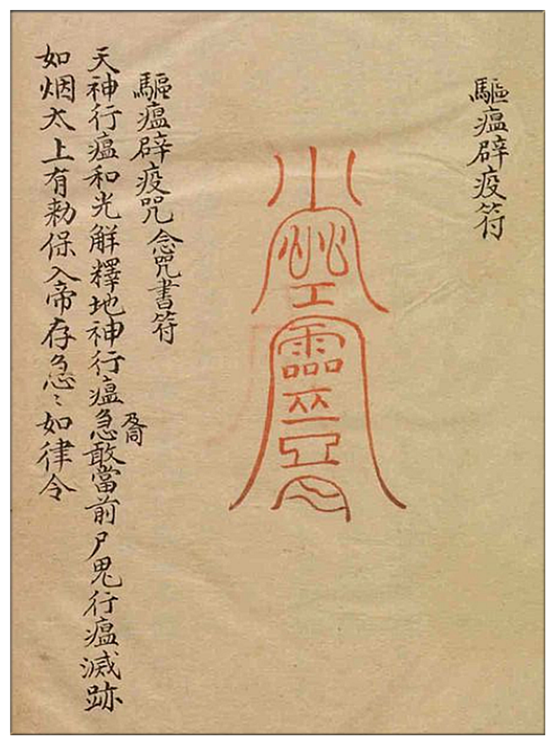 驅瘟辟疫符
驅瘟辟疫咒 念咒書符
天神行瘟和光解釋地神行瘟急敢當前尸鬼行瘟滅跡
如烟太上有勅保入帝存急〻如律令